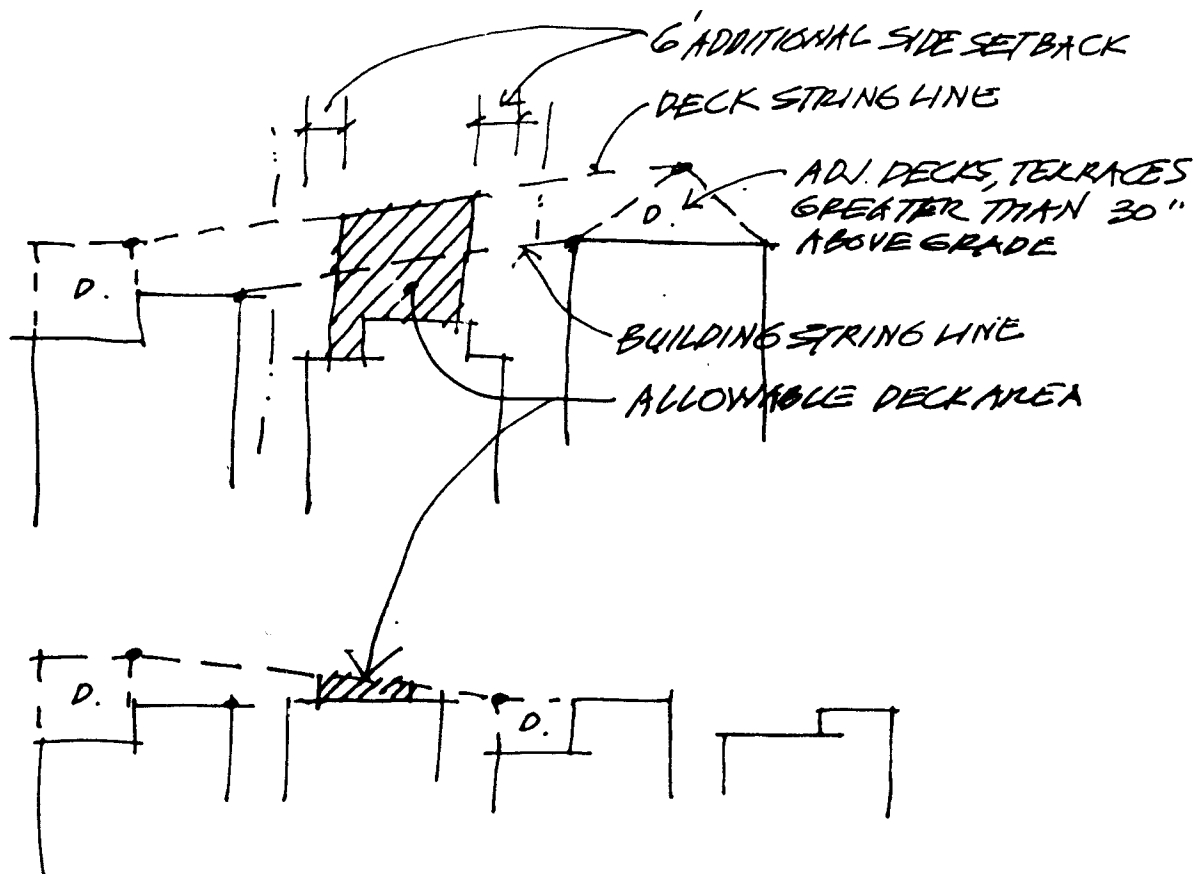 6' ADDITIONAL SIDE SETBACK
DECK STRING LINE
ADJ. DECKS, TERRACES
GREATER THAN 30"
ABOVE GRADE
D.
D.
BUILDING STRING LINE
ALLOWABLE DECK AREA
D.
D.